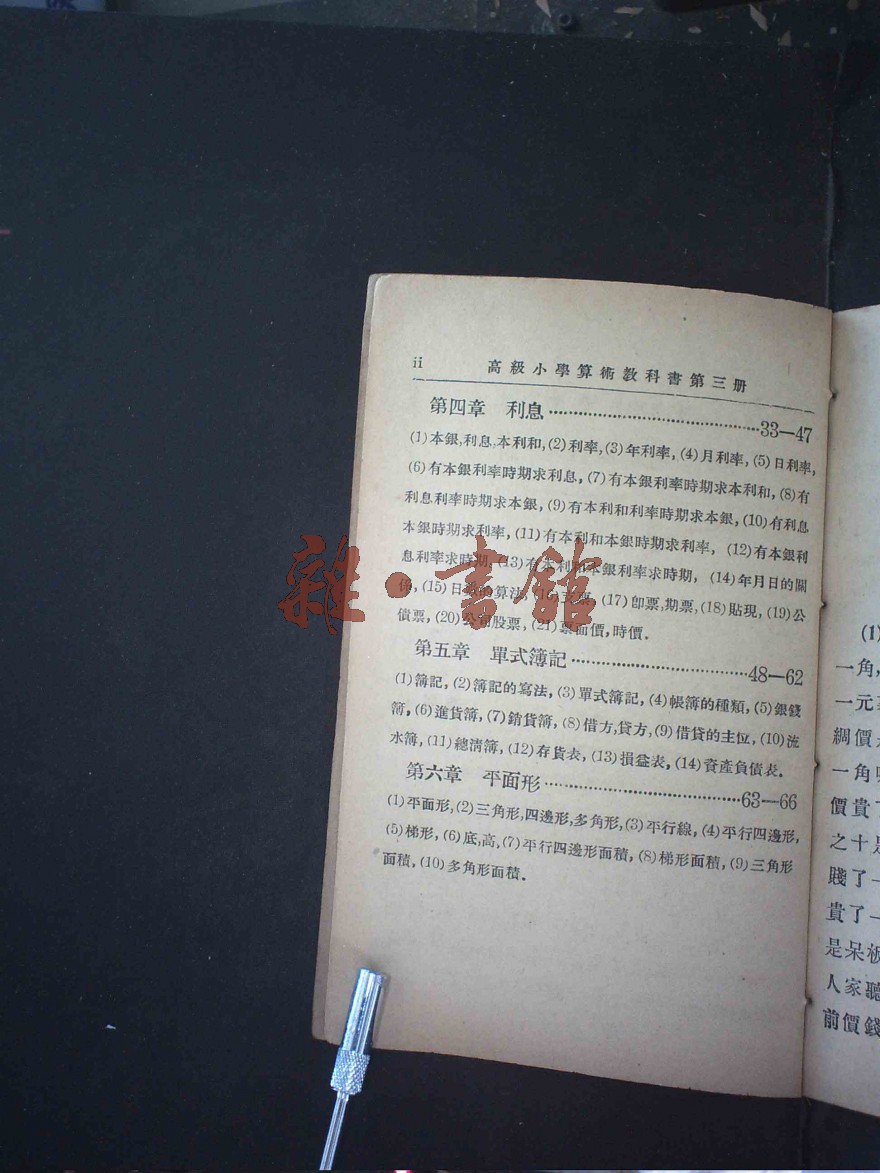 ii 高級小學算術教科書第三册
第四章 利息……………………………33—47
(1)本銀,利息,本利和,(2)利率,(3)年利率,(4)月利率,(5)日利率,
(6)有本銀利率時期求利息,(7)有本銀利率時期求本利和,(8)有
利息利率時期求本銀,(9)有本利和利率時期求本銀,(10)有利息
本銀時期求利率,(11)有本利和本銀時期求利率,(12)有本銀利
息利率求時期,(13)有本利和本銀利率求時期,(14)年月日的關
係,(15)日數的算法,(16)支票,(17)卽票,期票,(18)貼現,(19)公
債票,(20)公司股票,(21)票面價,時價.
第五章 單式簿記……………………………48—62
(1)簿記,(2)簿記的寫法,(3)單式簿記,(4)帳簿的種類,(5)銀錢
簿,(6)進貨簿,(7)銷貨簿,(8)借方,貸方,(9)借貸的主位,(10)流
水簿,(11)總淸簿,(12)存貨表,(13)損益表,(14)資產負債表.
第六章 平面形……………………………63—66
(1)平面形,(2)三角形,四邊形,多角形,(3)平行線,(4)平行四邊形,
(5)梯形,(6)底,高,(7)平行四邊形面積,(8)梯形面積,(9)三角形
面積,(10)多角形面積.
雜·書館
(1)
一角,
一元
綢價
一角
價貴了
之十是
賤了一
貴了一
是呆板
人家聽
前價錢